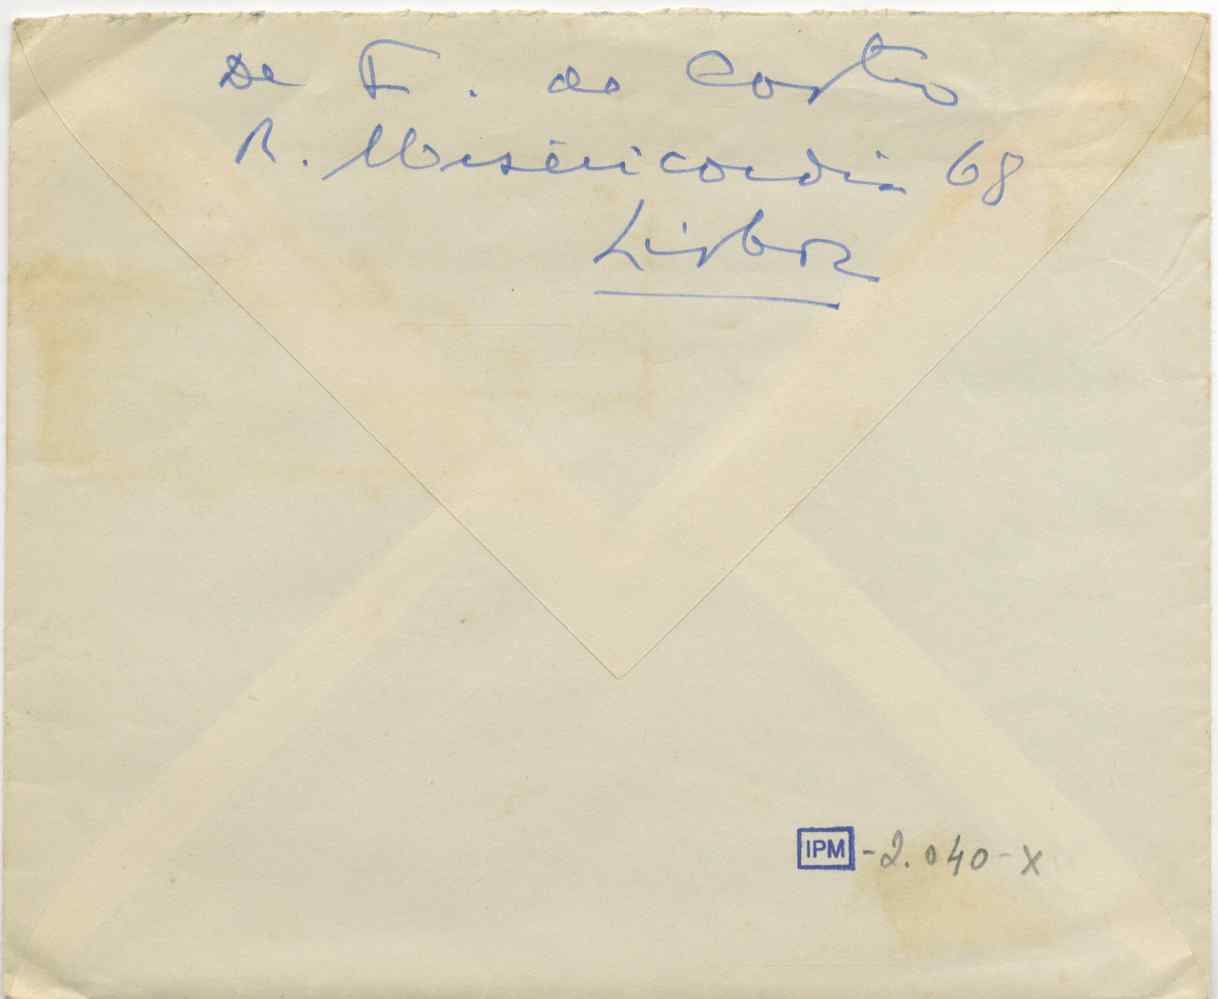 De F. da Costa
R. Misericordia 68
Lisboa
IPM - 2.040-X